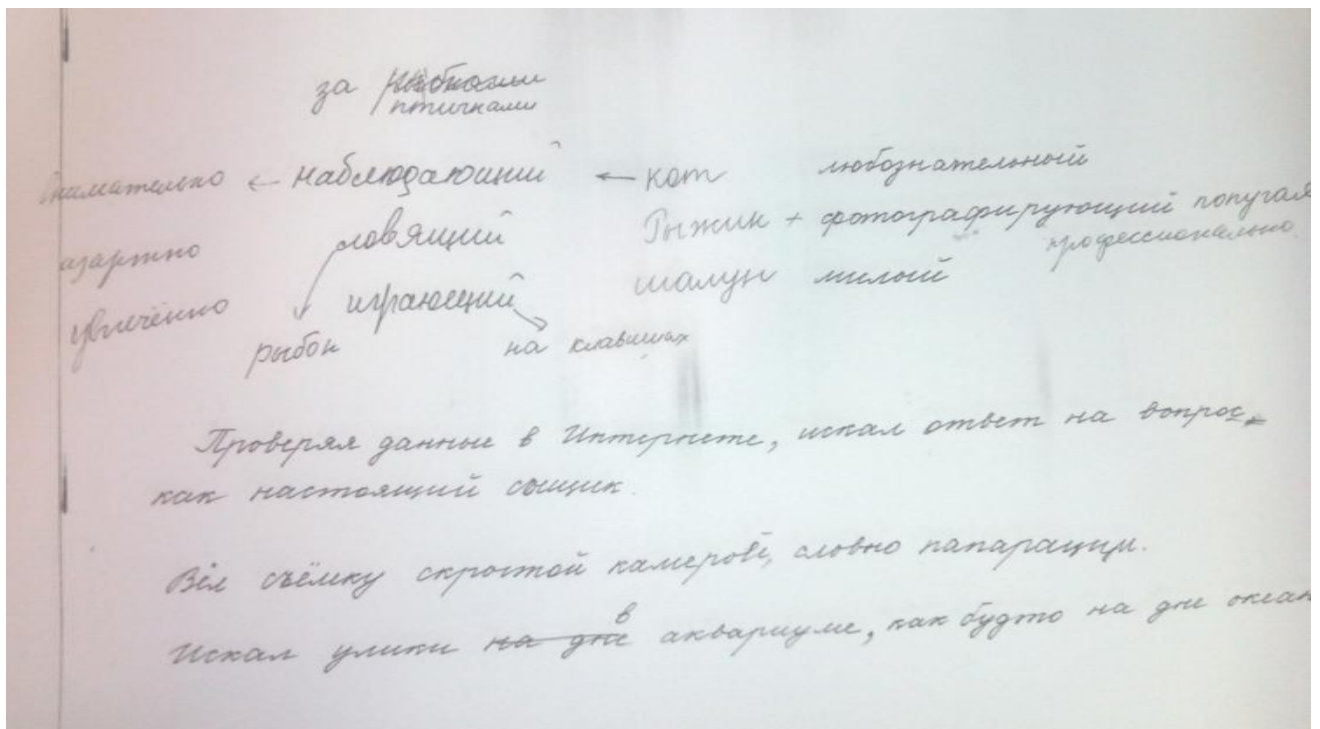 за рыбками
птичками
внимательно ← наблюдающий ← кот любознательный
азартно ловящий Рыжик + фотографирующий попугая
профессионально
увлечённо играющий шалун милый
рыбок на клавишах
Проверял данные в Интернете, искал ответ на вопрос,
как настоящий сыщик.
Вёл съёмку скрытой камерой, словно папарацци.
Искал улики на дне в аквариуме, как будто на дне океан